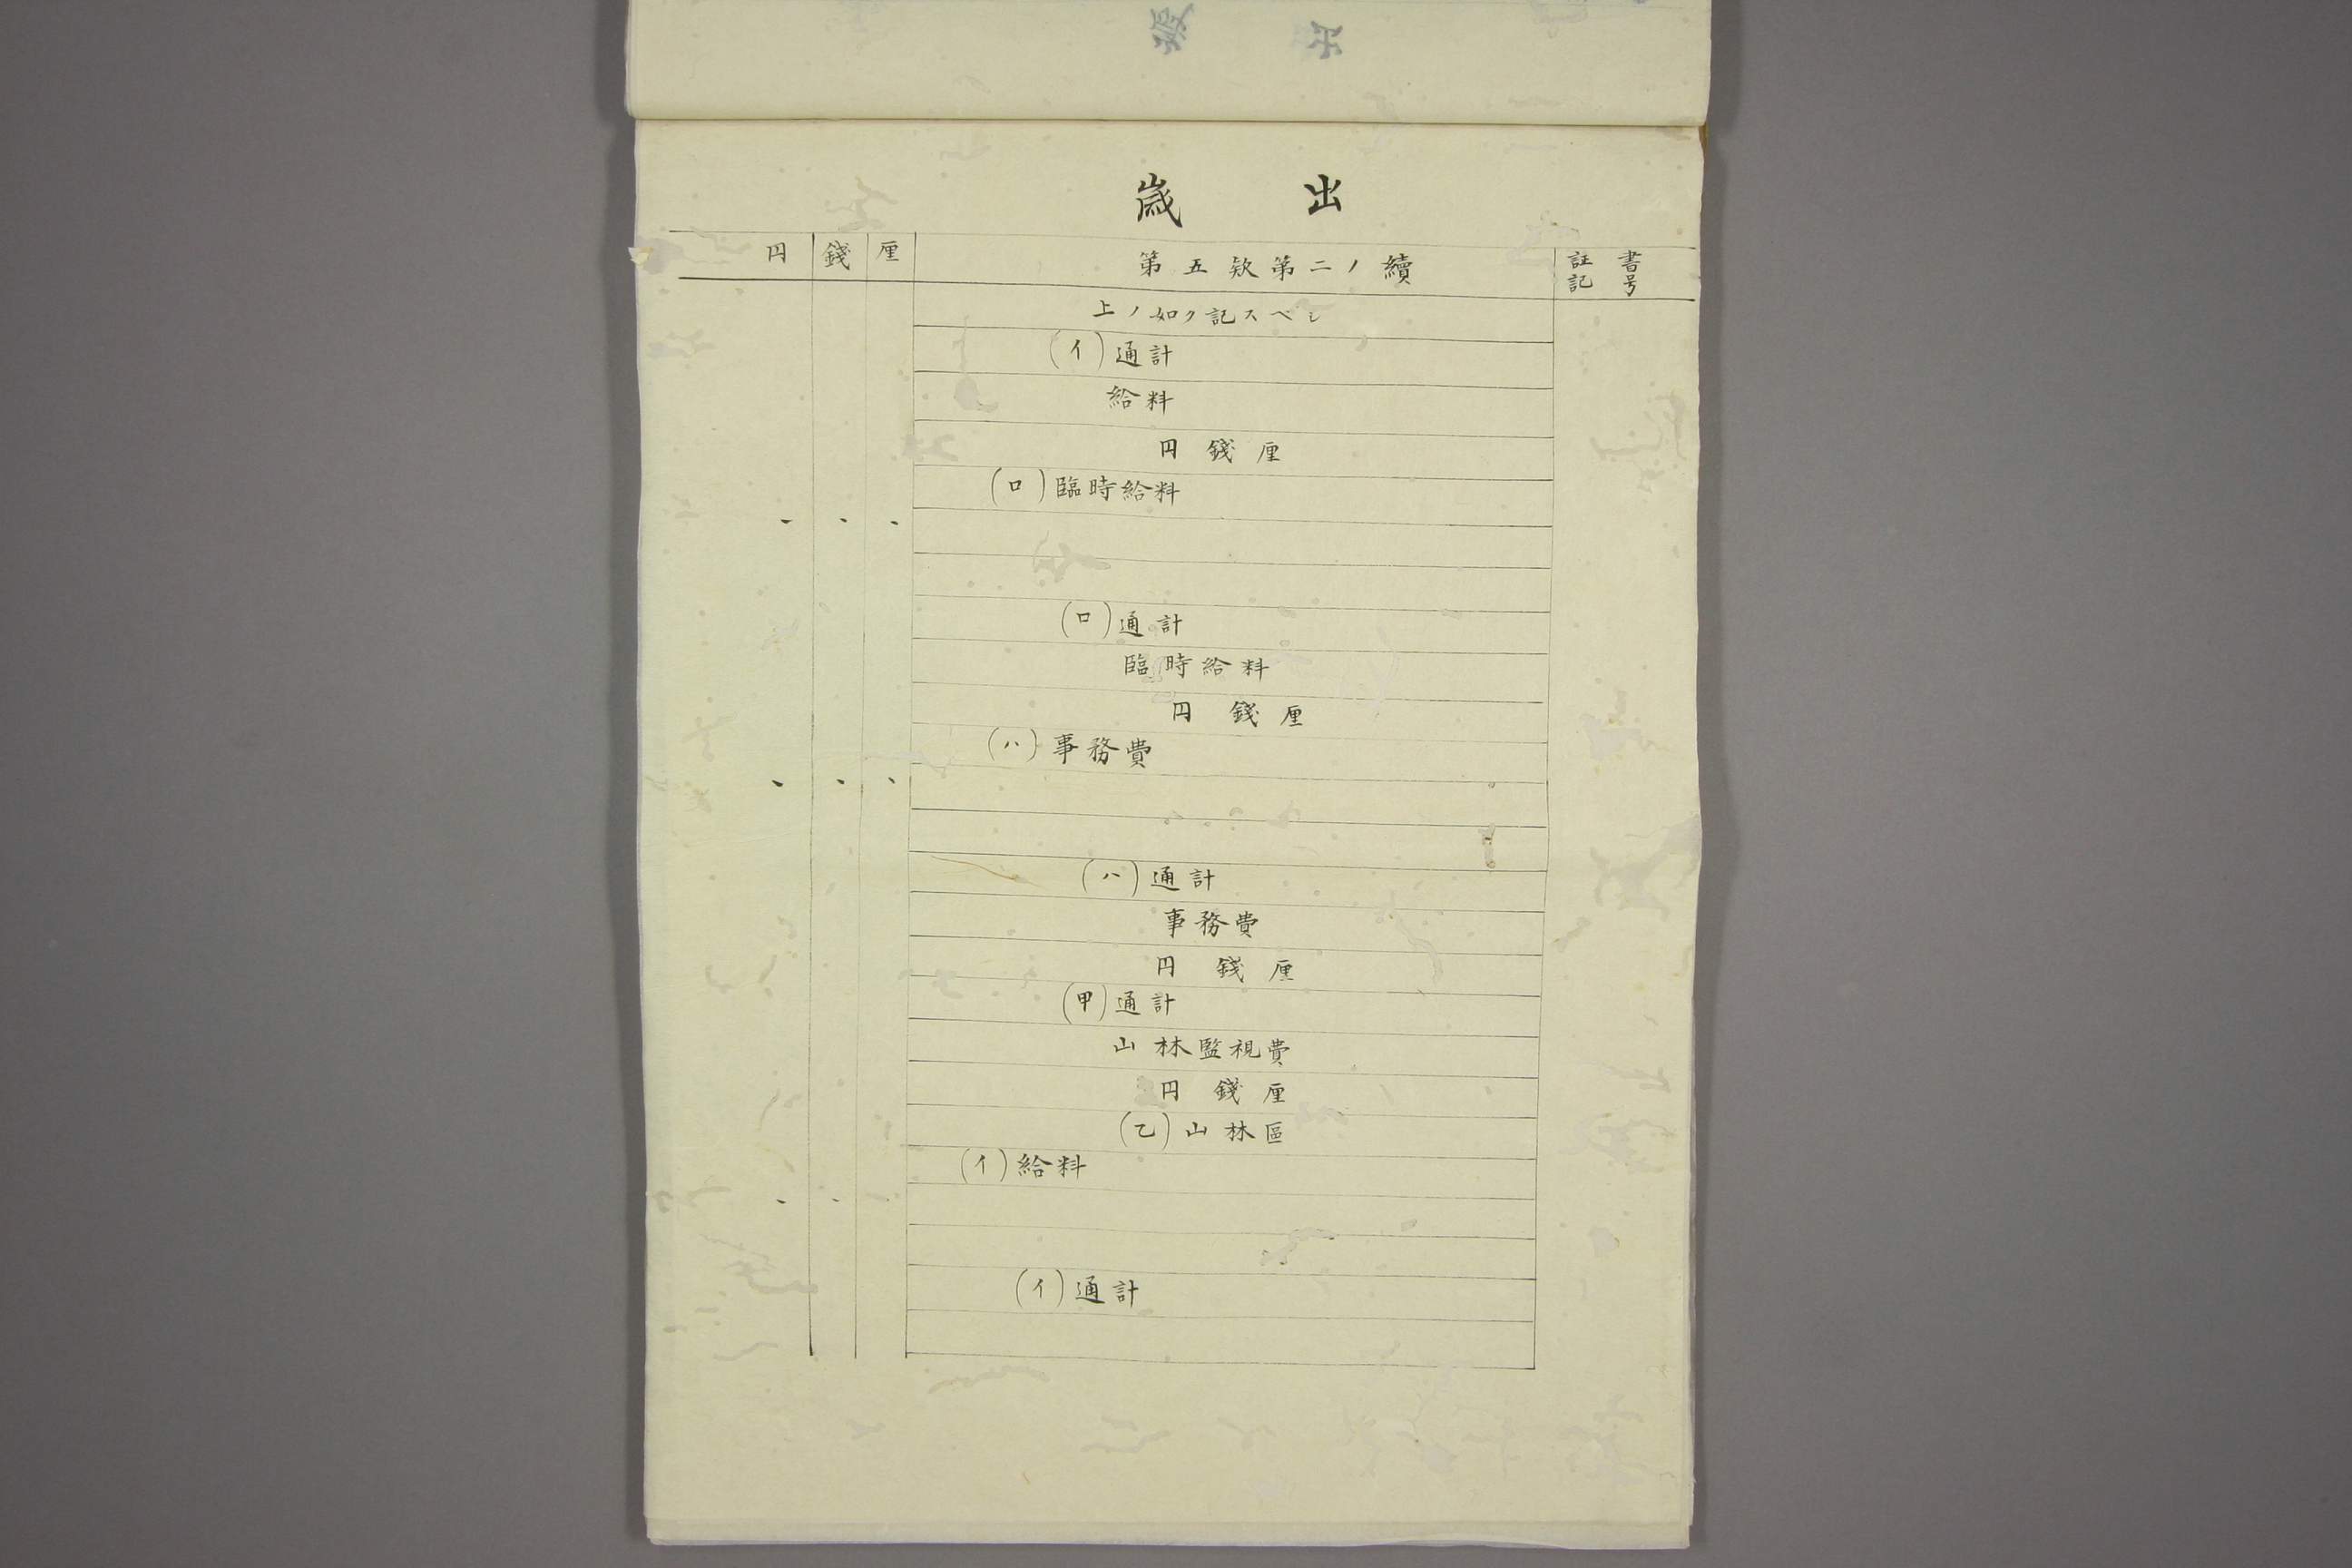 歳出
円 錢 厘 第五欵第二ノ續 証書記号
上ノ如ク記スベシ
(イ)通計
給料
円 錢 厘
(ロ)臨時給料
、 、 、
(ロ)通計
臨時給料
円 錢 厘
(ハ)事務費
、 、 、
(ハ)通計
事務費
円 錢 厘
(甲)通計
山林監視費
円 錢 厘
(乙)山林區
(イ)給料
、 、
(イ)通計